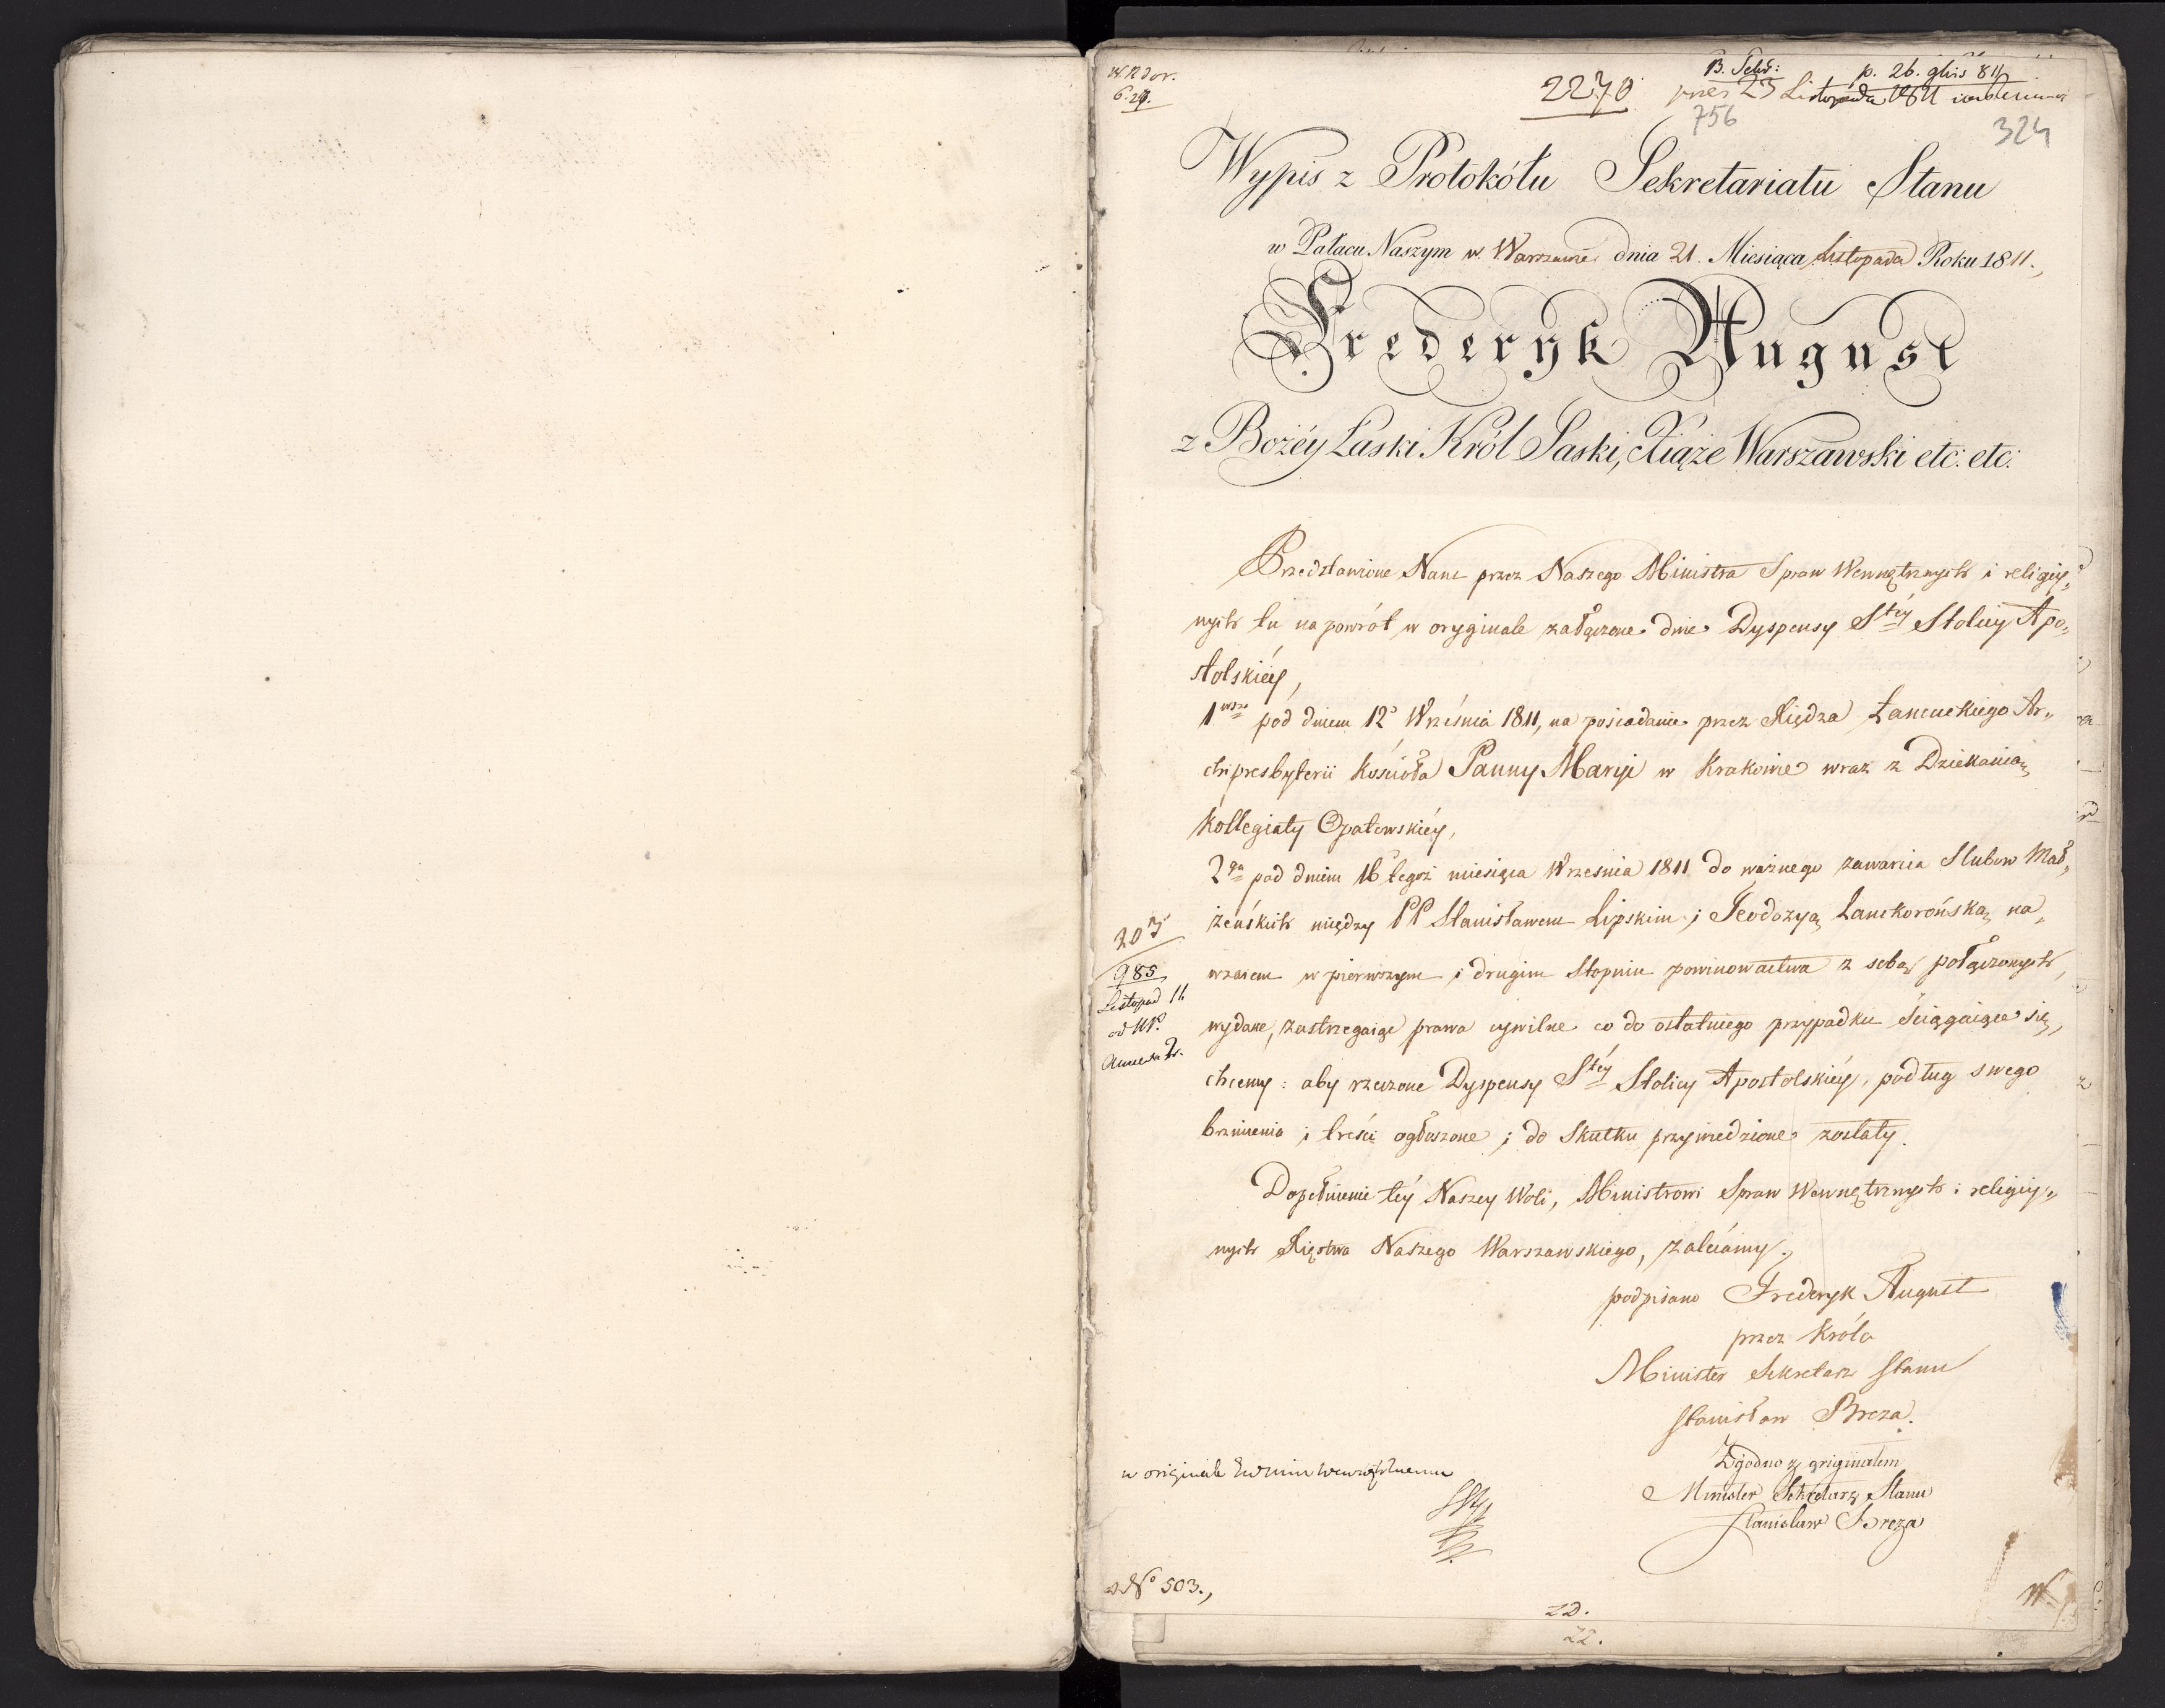 2270
B. Sekr:
p. 26. 9bris 811
pres 25 Listopada 1811
756
324
Wypis z Protokółu Sekretariatu Stanu
w Pałacu Naszym w Warszawie dnia 21. Miesiąca Listopada Roku 1811.
Frederyk August
z Bożéy Łaski Król Saski, Xiąże Warszawski etc: etc:
Przedstawione Nam przez Naszego Ministra Spraw Wewnętrznych i religiy„
nych tu na powrót w oryginale załączone dwie Dyspensy Stéy Stolicy Apo„
stolskiéy,
1wsze pod dniem 12 Września 1811, na posiadanie przez Xiędza Łancuckiego Ar„
chipresbyterii Kościoła Panny Maryi w Krakowie wraz z Dziekanią
Kollegiaty Opatowskiéy,
2ga pod dniem 16 tegoż miesiąca Września 1811 do ważnego zawarcia Slubow Mał„
żeńskich między PP Stanisławem Lipskim i Teodozyą Lanckorońską na„
wzaiem w pierwszym i drugim Stopniu powinowactwa z sobą połączonych,
wydane, zastrzegaiąc prawa cywilne co do ostatniego przypadku ściągaiące się,
chcemy: aby rzeczone Dyspensy Stéy Stolicy Apostolskiéy, podług swego
brzmienia i treści ogłoszone i do Skutku przywiedzione zostały.
Dopełnienie téy Naszey Woli, Ministrowi Spraw Wewnętrznych i religiy„
nych Xięstwa Naszego Warszawskiego, zalecamy.
203
985
Listopad 11
podpisano Frederyk August
przez Króla
Minister Sekretarz Stanu
Stanisław Breza.
Zgodno z originałem
Minister Sekretarz Stanu
Stanisław Breza
w originale
No 503.,
22.